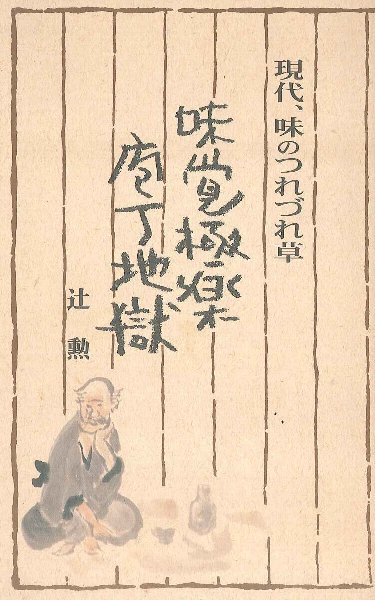 現代、味のつれづれ草
味覚極楽
庖丁地獄
辻 勲